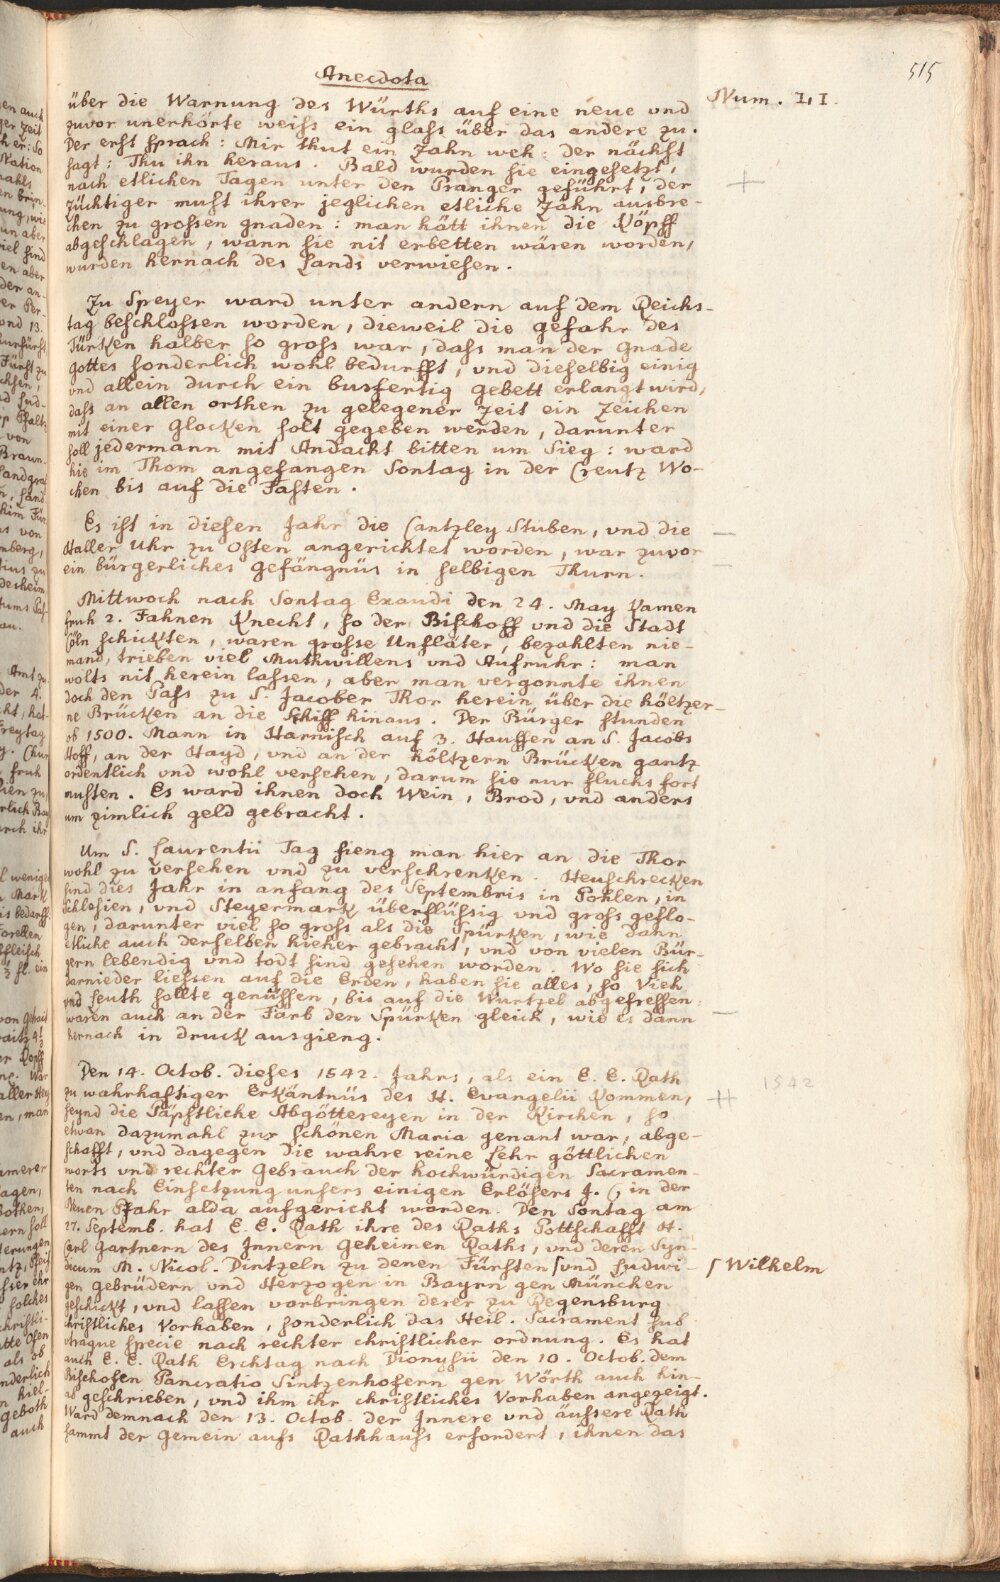 Anecdota
515
Num. I, I.
über die Warnung des Würths auf eine neue vnd
zuvor unerhörte weiss ein glass über das andere zu.
Der erst sprach: Mir thut ein Zahn weh: der nächst
sagt: Thu ihn heraus. Bald wurden sie eingesetzt,
nach etlichen Tagen unter den Pranger geführt, der
züchtiger must ihrer jeglichen etliche Zähn ausbre-
chen zu grossen gnaden: man hätt ihnen die Köpff
abgeschlagen, wann sie nit erbetten wären worden,
wurden hernach des Lands verwiesen.
Zu Speyer ward unter andern auf dem Reichs-
tag beschlossen worden, dieweil die gefahr des
Türken halber so gross war, dass man der Gnade
gottes sonderlich wohl bedurfft, vnd dieselbig einig
vnd allein durch ein busfertig gebett erlangt wird,
dass an allen orthen zu gelegener Zeit ein Zeichen
mit einer Glocken solt gegeben werden, darunter
soll jedermann mit Andacht bitten um Sieg: ward
hie im Thom angefangen Sontag in der Creutz Wo-
chen bis auf die Fasten.
Es ist in diesen Jahr die Cantzley Stuben, vnd die
Haller Uhr zu Osten angerichtet worden, war zuvor
ein bürgerliches Gefängnüs in selbigen Thurn.
Mittwoch nach Sontag Exaudi den 24. May Kamen
fruh 2. Fahnen Knecht, so der Bischoff vnd die Stadt
Cöln schickten, waren grosse Unfläter, bezahlten nie-
mand, trieben viel Muthwillens vnd Aufruhr: man
wolts nit herein lassen, aber man vergonnte ihnen
doch den Pass zu S. Jacober Thor herein über die höltzer-
ne Brücken an die Schiff hinaus. Der Bürger stunden
ob 1500. Mann in Harnisch auf 3. Hauffen an S. Jacobs
Hoff, an der Hayd, vnd an der höltzern Brücken gantz
ordentlich vnd wohl versehen, darum sie nur flucks fort
musten. Es ward ihnen doch Wein, Brod, vnd anders
um zimlich geld gebracht.
Um S. Laurentii Tag fieng man hier an die Thor
wohl zu versehen vnd zu verschrenken. Heuschrecken
sind dies Jahr in anfang des Septembris in Pohlen, in
Schlesien, vnd Steyermark überflüssig vnd gross geflo-
gen, darunter viel so gross als die Spürken, wie dann
etliche auch derselben hieher gebracht, vnd von vielen Bür-
gern lebendig vnd todt sind gesehen worden. Wo sie sich
darnieder liessen auf die Erden, haben sie alles, so Vieh
vnd Leuth sollte genüssen, bis auf die Wurtzel abgefressen:
waren auch an der Farb den Spürken gleich, wie es dann
hernach in druck ausgieng.
Den 14. Octob. dieses 1542. Jahrs, als ein E. E. Rath
1542
zu wahrhafftiger Erkäntnüs des H. Evangelii Kommen,
seynd die Päpstliche Abgöttereyen in der Kirchen, so
etwan dazumahl zur schönen Maria genant war, abge-
schafft, vnd dagegen die wahre reine Lehr göttlichen
worts vnd rechter Gebrauch der hochwürdigen Sacramen-
ten nach Einsetzung unsers einigen Erlösers J. C. in der
Neuen Pfahr alda aufgericht worden. Den Sontag am
27. Septemb. hat E. E. Rath ihre des Raths Pottschafft H.
Carl Gartnern des Innern Geheimen Raths, vnd deren Syn-
dicum M. Nicol. Dintzeln zu denen Fürsten ʃ vnd Ludwi-
ʃ Wilhelm
gen gebrüdern vnd Herzogen in Bayrn gen München
geschickt, vnd lassen vorbringen derer zu Regensburg
christliches Vorhaben, sonderlich das Heil. Sacrament sub
utraque specie nach rechter christlicher ordnung. Es hat
auch E. E. Rath Erchtag nach Dionysii den 10. Octob. dem
Bischofen Pancratio Sintzenhofern gen Wörth auch hin-
ab geschrieben, vnd ihm ihr christliches Vorhaben angezeigt.
Ward demnach den 13. Octob. der Innere vnd äussere Rath
sammt der gemein aufs Rathhauss erfordert, ihnen das